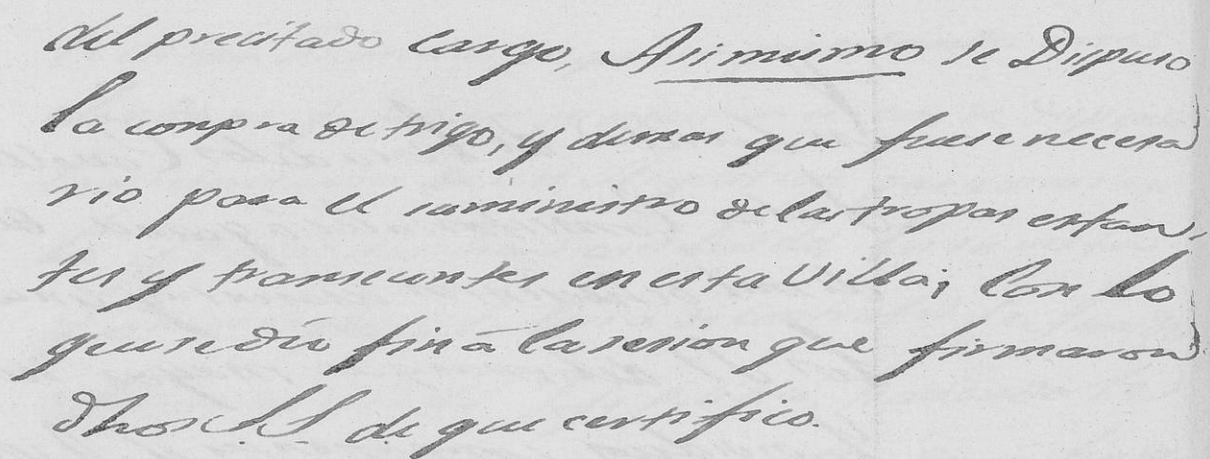 del precitado cargo, Asimismo se Dispuso
la compra de trigo, y demas que fuese necesa
rio para el suministro de las tropas estan-
tes y transeuntes en esta Villa; Con lo
que se dio fin à la sesion que firmaron
dhos SS. de que certifico.